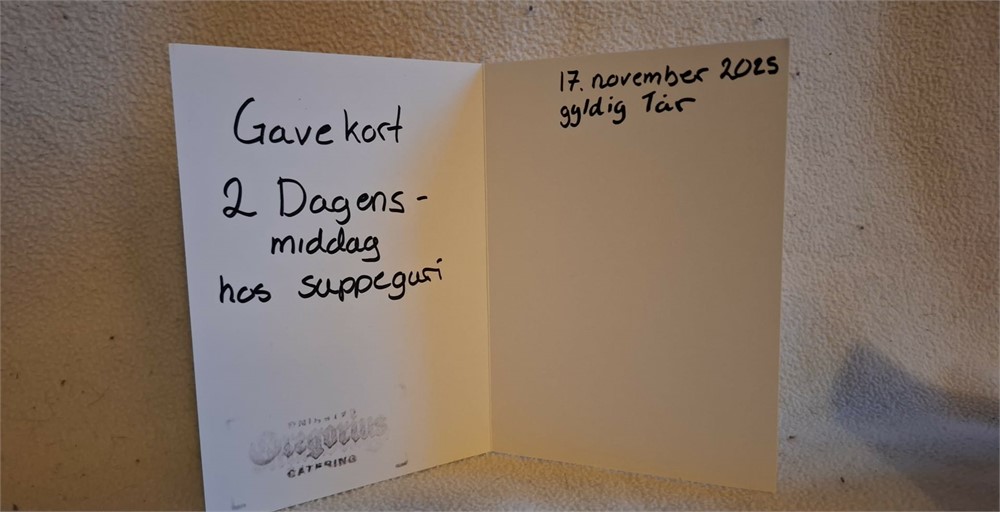 Gavekort
2 Dagens-
middag
hos suppeguri
Gregorius
CATERING
17. november 2025
gyldig 1år